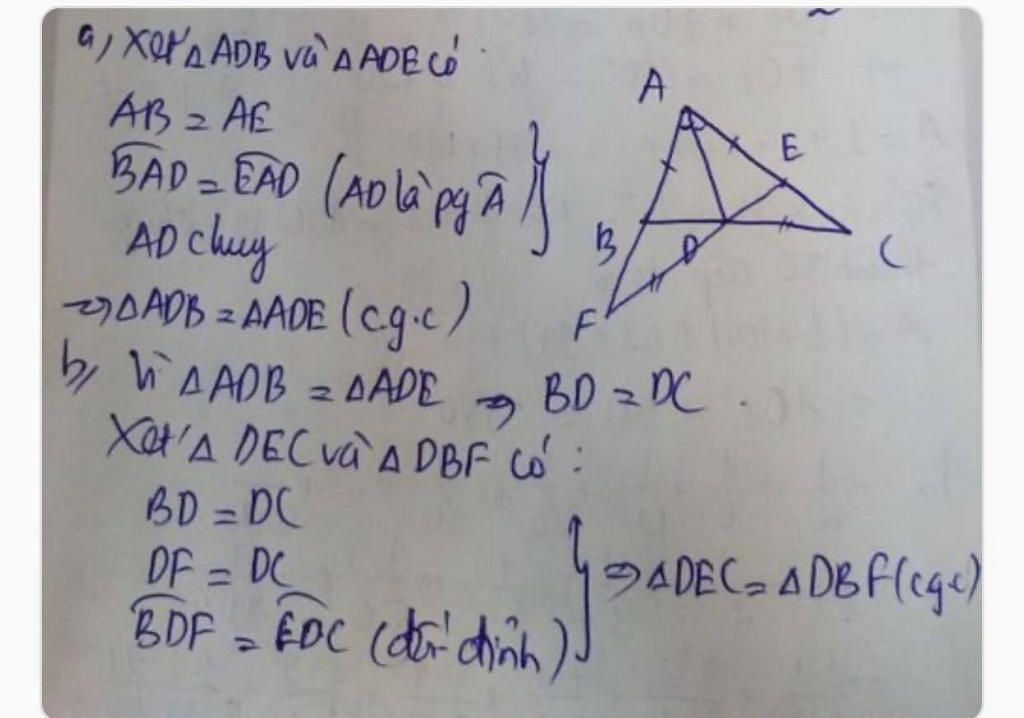 a, Xét △ADB và △ADE có
AB = AE
BAD = EAD (AD là pg A)
AD chug
=> △ADB = △ADE (c.g.c)
b, Vì △ADB = △ADE => BD = DC.
Xét △ DEC và △ DBF có:
BD = DC
DF = DC
BDF = EDC (đối đỉnh)
=> △DEC = △DBF (cgc)
A
E
B
D
C
F